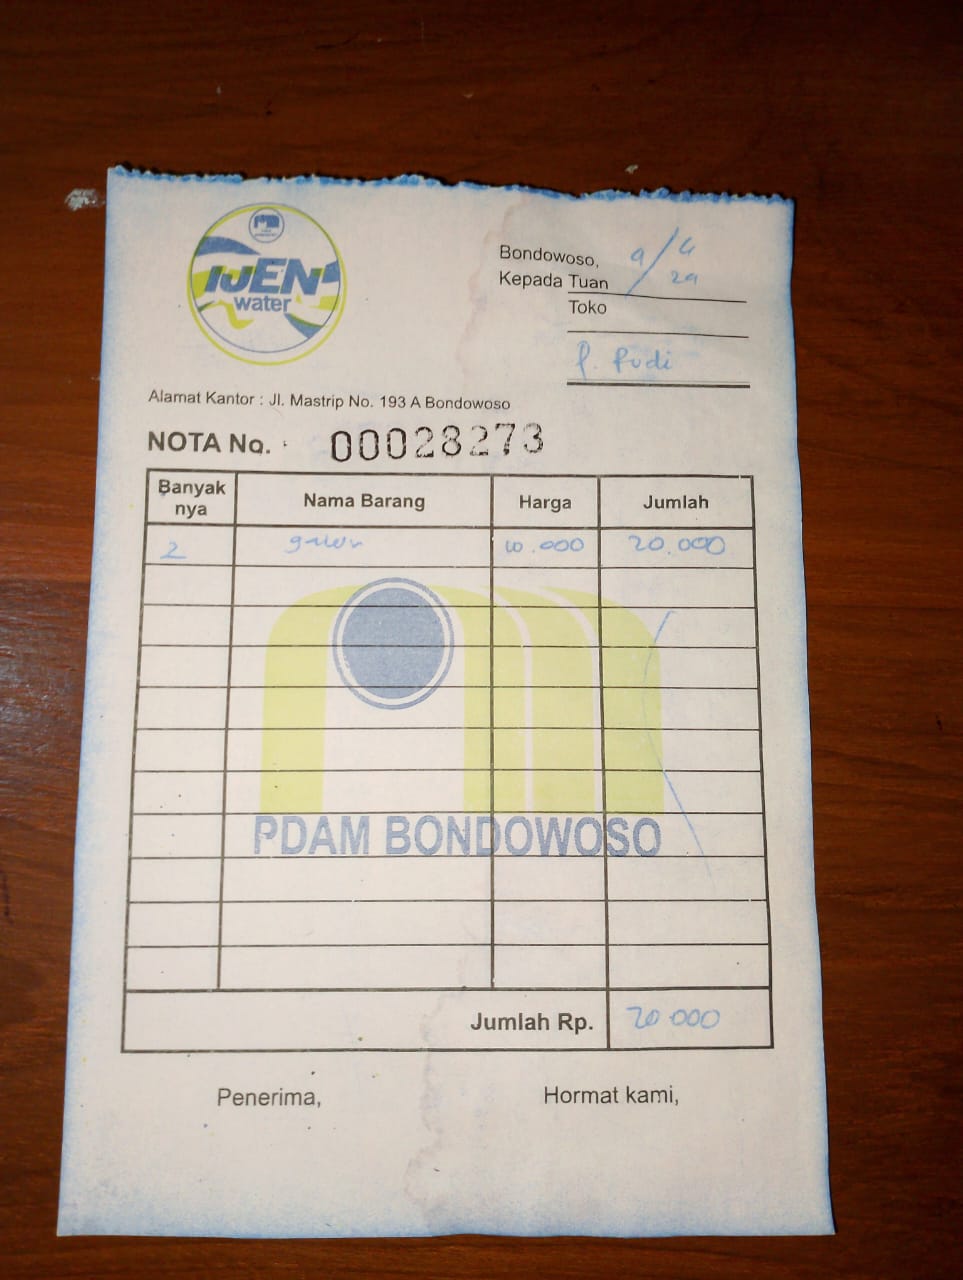 IJEN
water
Bondowoso,
Kepada Tuan
Toko
P. Rudi
Alamat Kantor : Jl. Mastrip No. 193 A Bondowoso
NOTA No. : 00028273
Banyak nya Nama Barang Harga Jumlah
2 galon 10.000 20.000
PDAM BONDOWOSO
Jumlah Rp. 20.000
Penerima, Hormat kami,